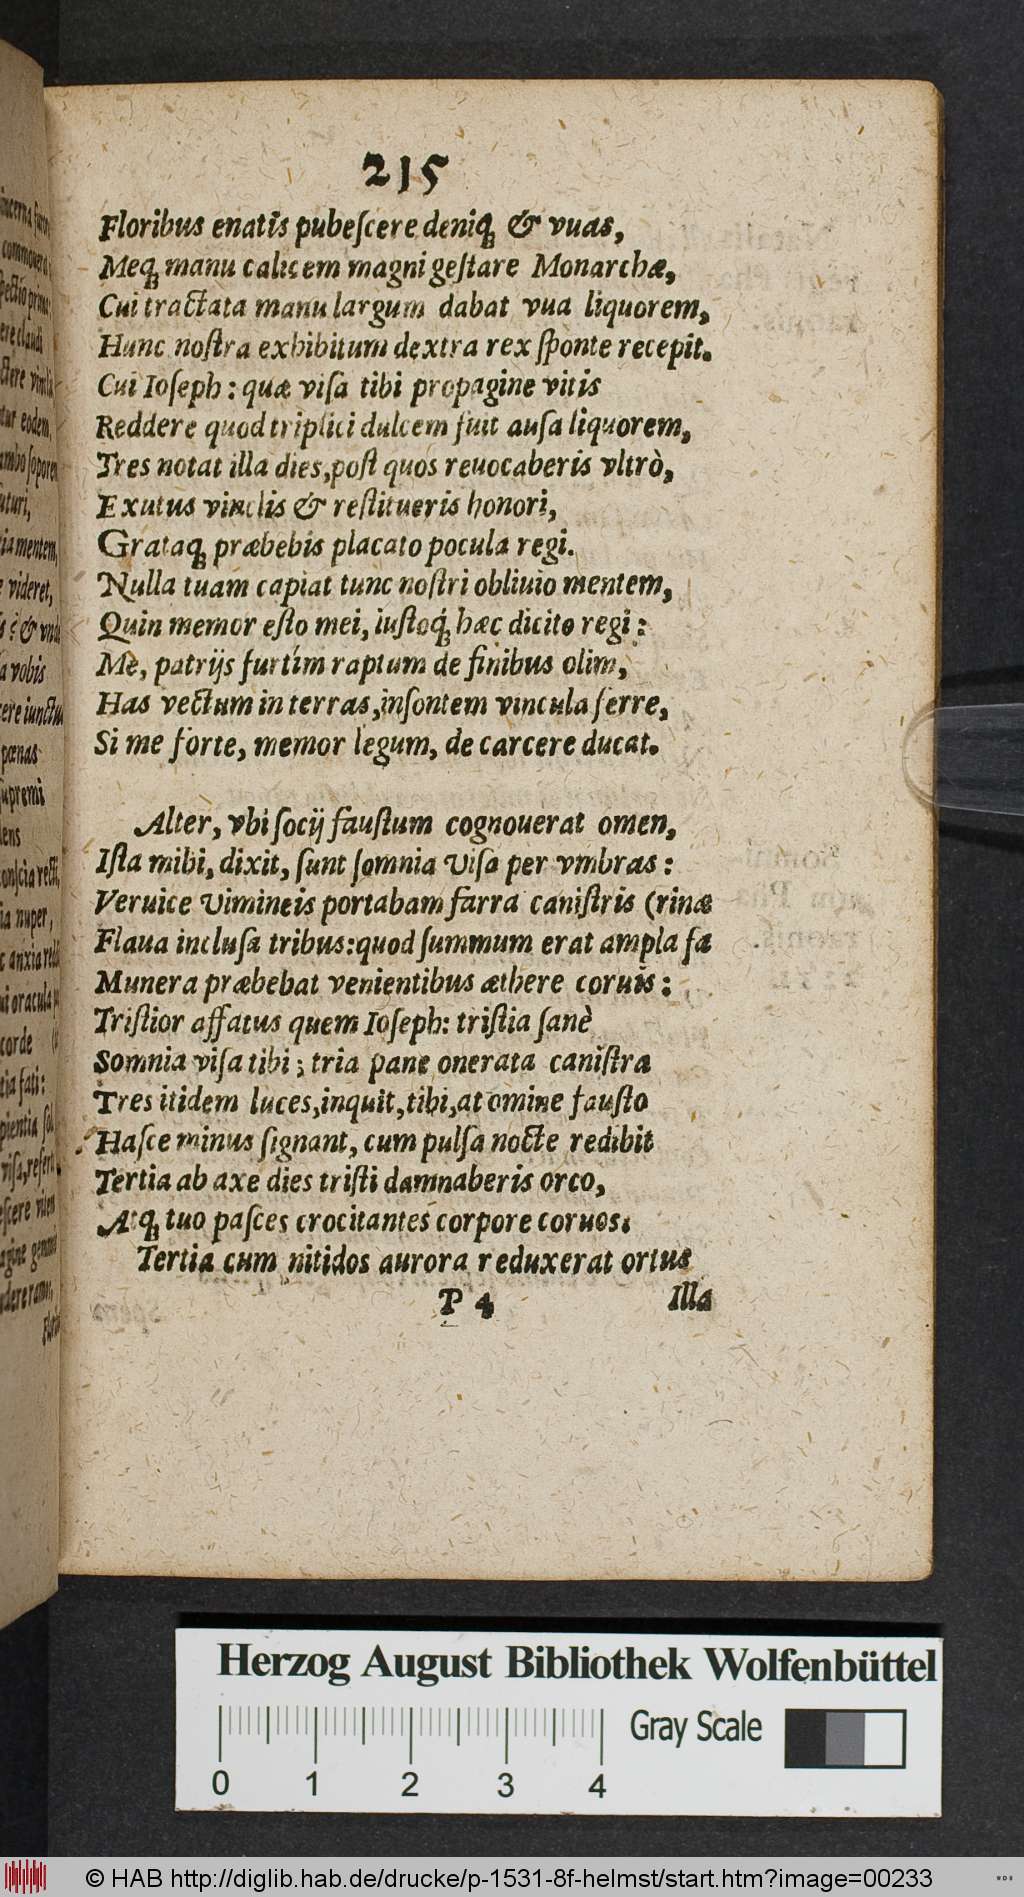 215
Floribus enatis pubeſcere deniqꝫ & vuas,
Meqꝫ manu calicem magni geſtare Monarchæ,
Cui tractata manu largum dabat vua liquorem,
Hunc noſtra exhibitum dextra rex ſponte recepit.
Cui Ioſeph: quæ viſa tibi propagine vitis
Reddere quod triplici dulcem fuit auſa liquorem,
Tres notat illa dies, poſt quos reuocaberis vltrò,
Exutus vinclis & reſtitueris honori,
Grataqꝫ præbebis placato pocula regi.
Nulla tuam capiat tunc noſtri obliuio mentem,
Quin memor eſto mei, iuſtoqꝫ́ hæc dicito regi:
Me, patrijs furtim raptum de finibus olim,
Has vectum in terras, inſontem vincula ferre,
Si me forte, memor legum, de carcere ducat.
Alter, vbi ſocij fauſtum cognouerat omen,
Iſta mihi, dixit, ſunt ſomnia viſa per vmbras:
Veruice vimineis portabam farra caniſtris (rinæ
Flaua incluſa tribus: quod ſummum erat ampla fa
Munera præbebat venientibus æthere coruis:
Triſtior affatus quem Ioſeph: triſtia ſanè
Somnia viſa tibi; tria pane onerata caniſtra
Tres itidem luces, inquit, tibi, at omine fauſto
Haſce minus ſignant, cum pulſa nocte redibit
Tertia ab axe dies triſti damnaberis orco,
Atqꝫ tuo paſces crocitantes corpore coruos:
Tertia cum nitidos aurora reduxerat ortus
P 4 Illa
Herzog August Bibliothek Wolfenbüttel
Gray Scale
0 1 2 3 4
© HAB http://diglib.hab.de/drucke/p-1531-8f-helmst/start.htm?image=00233